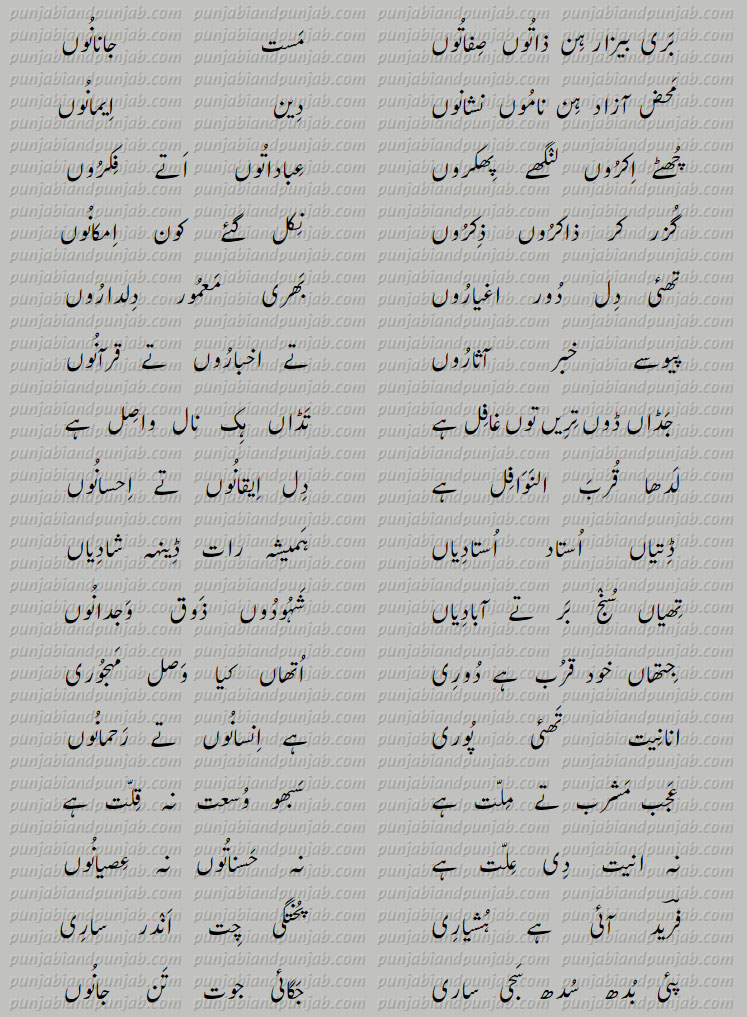 بَری بیزار ہِن ذاتُوں صِفاتُوں مَست جانانُوں
مَحض آزاد ہِن نامُوں نشانوں دِین اِیمانُوں
چُھٹے اِکرُوں لنگھے پِھکروں عِباداتُوں اَتے فِکرُوں
گُزر کر ذاکرُوں ذِکرُوں نِکل گئے کون اِمکانُوں
تھئی دِل دُور اغیارُوں بَھری مَعمُور دِلدارُوں
پیوسے خبر آثارُوں تے اخبارُوں تے قرآنُوں
جَڈاں ڈوں تِریں توں غافِل ہے تَڈاں ہِک نال واصِل ہے
لَدھا قُربَ النَوَافِل ہے دِل اِیقانُوں تے اِحسانُوں
ڈِتیاں اُستاد اُستادِیاں ہَمیشہ رات ڈِینہہ شادِیاں
تِھیاں سُنْج بَر تے آبادِیاں شَہُودُوں ذَوق وَجدانُوں
جِتھاں خود قرُب ہے دُورِی اُتھاں کیا وَصل مَہجُوری
انانِیت تَھئی پُوری ہے اِنسانُوں تے رَحمانُوں
عَجب مَشرب تے مِلّت ہے سَبھو وُسعت نہ قِلّت ہے
نہ انیت دِی عِلّت ہے نہ حَسناتُوں نہ عِصیانُوں
فرید آئی ہے ہُشیارِی پُختگی چِت اَنْدر سارِی
پئی بُدھ سُدھ سَجی ساری جَگائی جوت تَن جانُوں
punjabiandpunjab.com